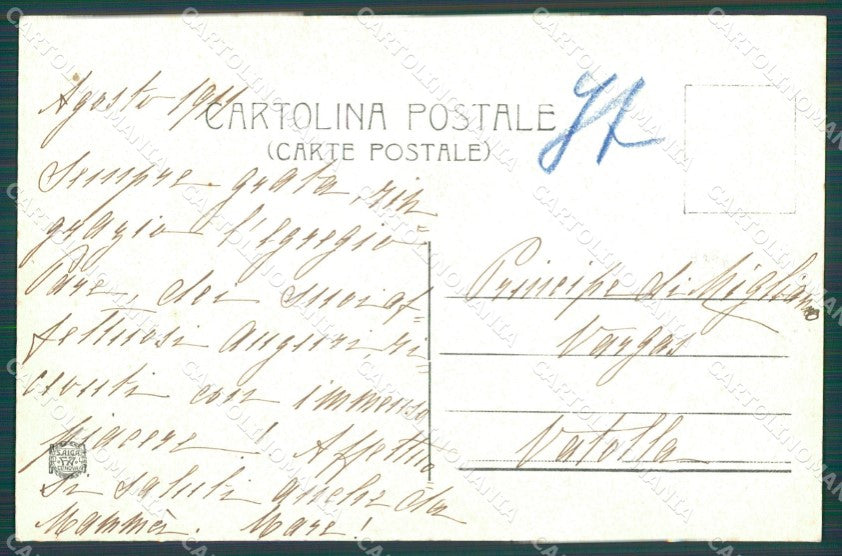 Agosto 1911
CARTOLINA POSTALE
(CARTE POSTALE)
Sempre grata, rin=
grazio l'Egregio
dei suoi af=
fettuosi auguri, ri=
cevuti con immenso
piacere! Affettuo
si saluti anche da
Mammà.
Principe di Migliano
Vargas
Vatolla
SAIGA
GENOVA
CARTOLINOMANIA